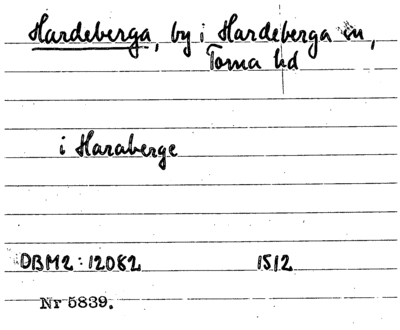 Hardeberga, by i Hardeberga sn,
Torna hd
i Haraberge
DBM2:12082 1512
Nr 5839.